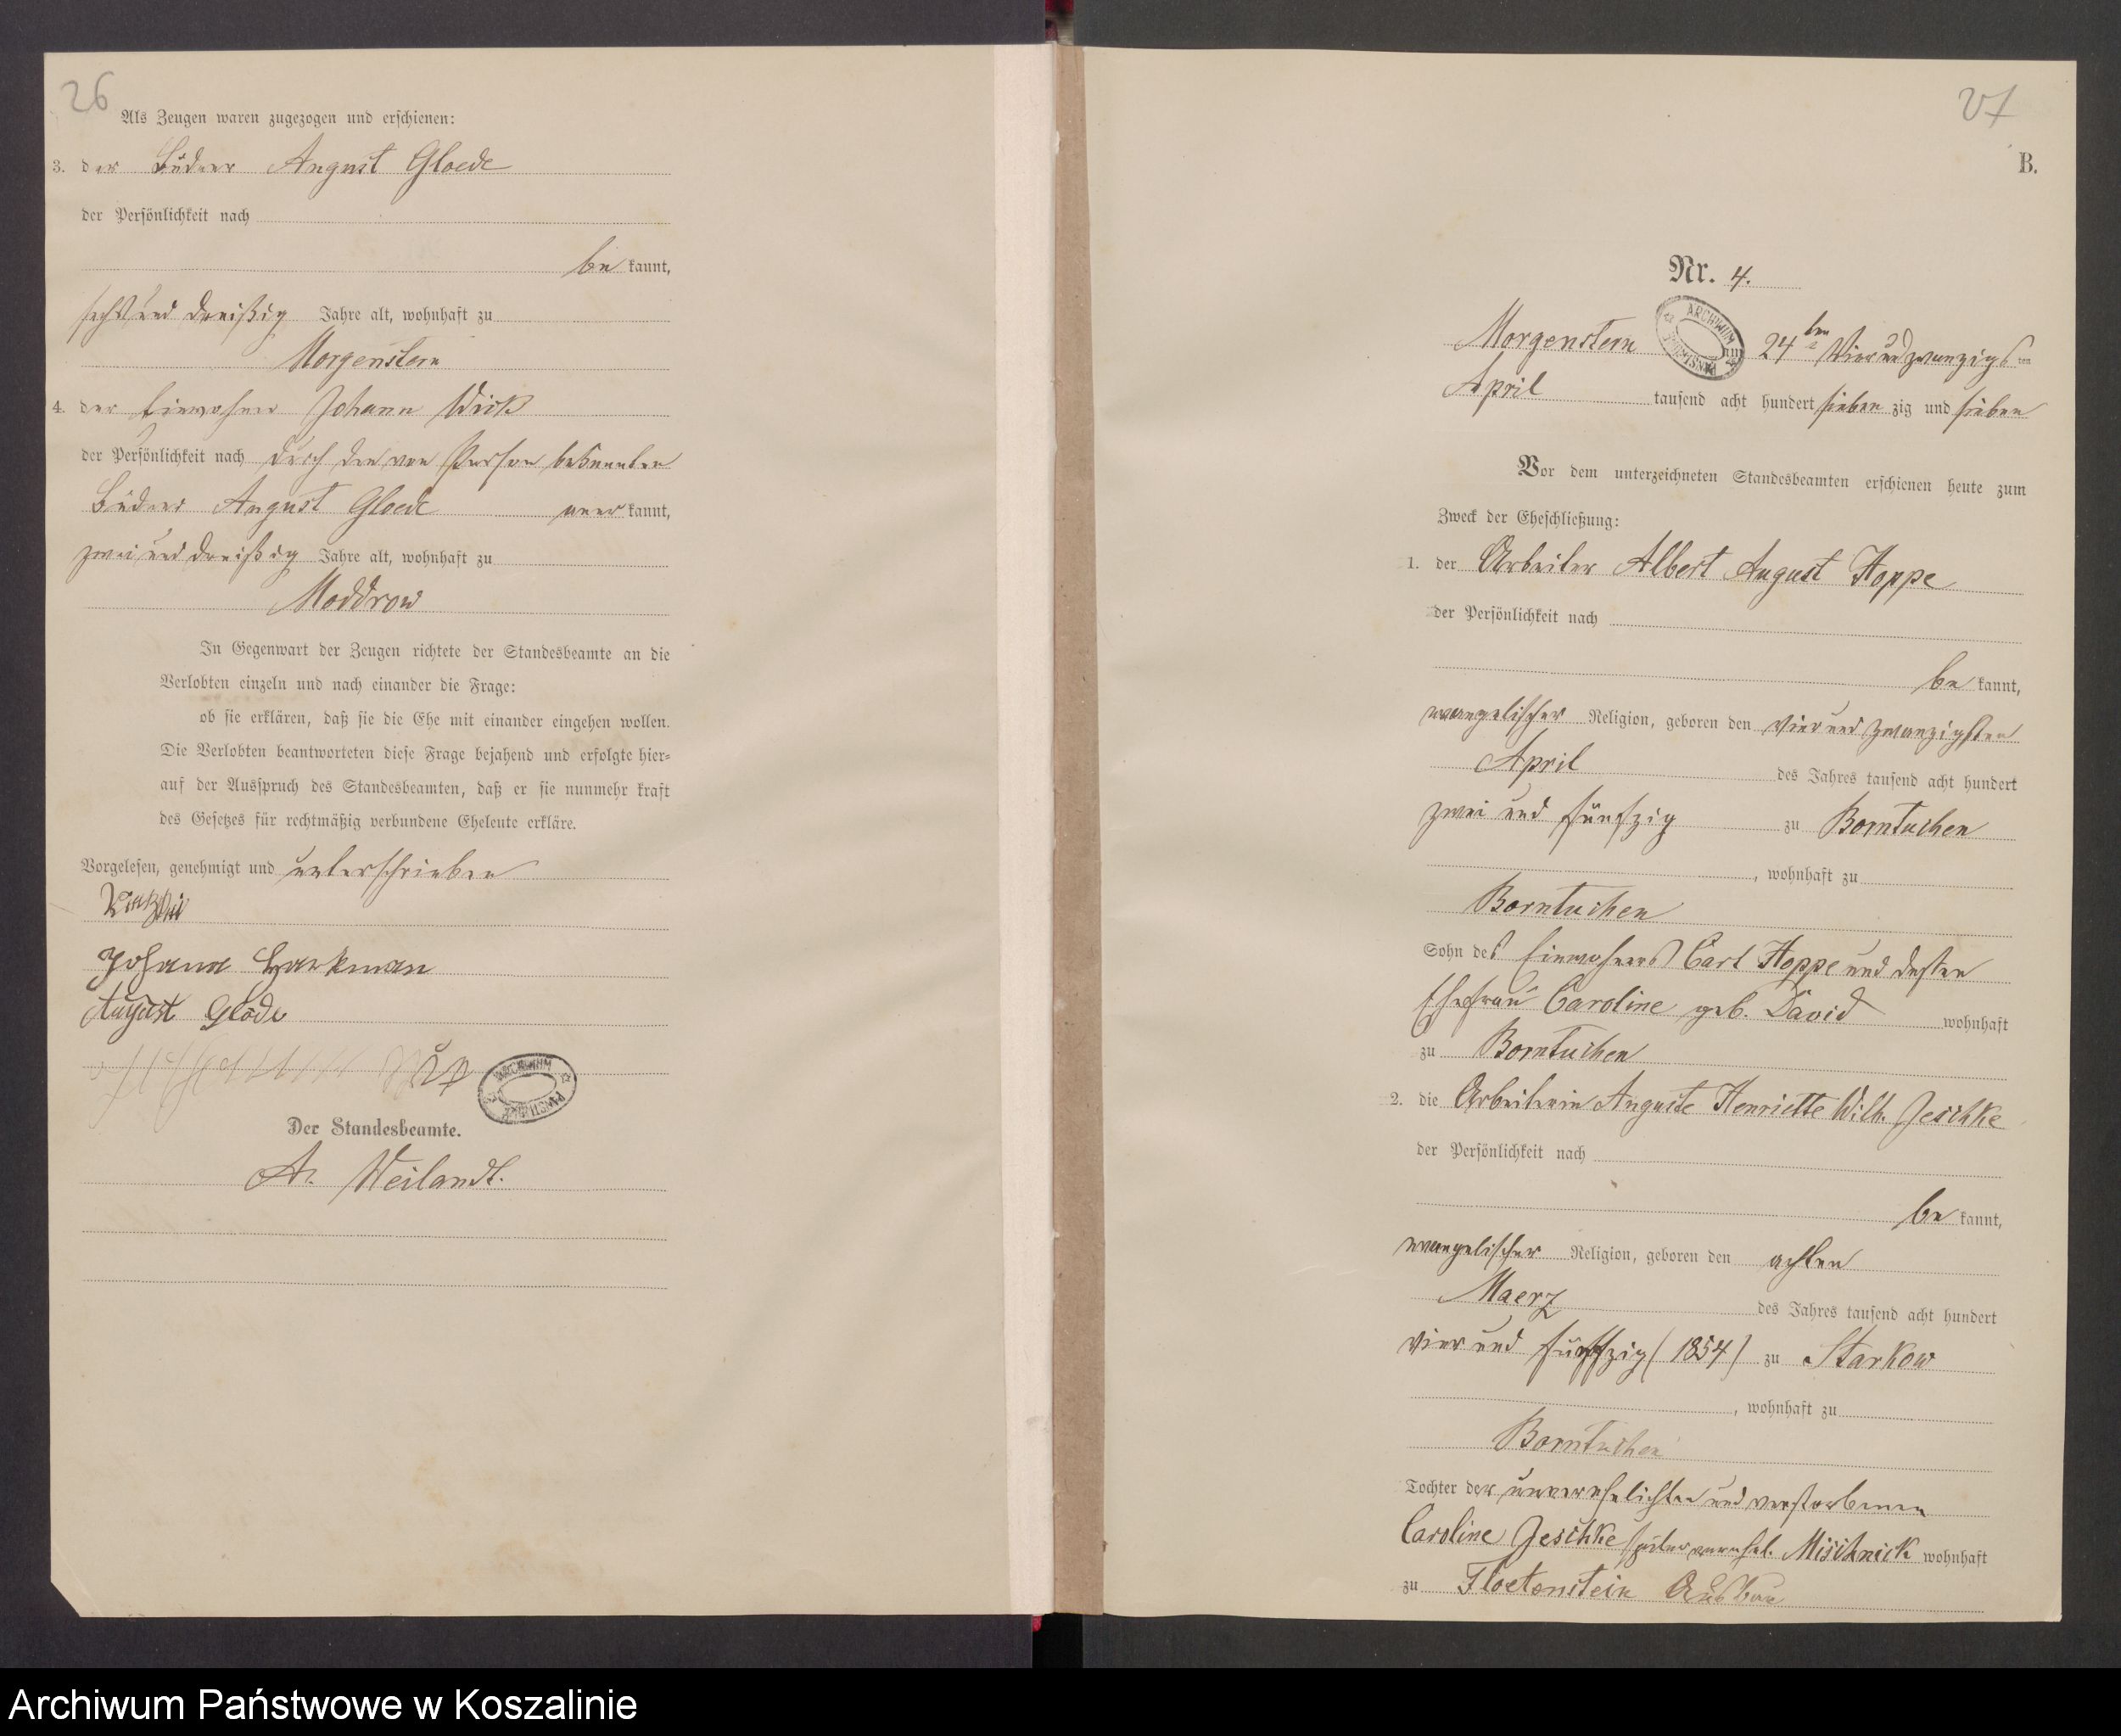 26
Als Zeugen waren zugezogen und erschienen:
3. der Büdner August Gloede
der Persönlichkeit nach
be kannt,
sechs und dreißig Jahre alt, wohnhaft zu
Morgenstern
4. der Einwohner Johann Wick
der Persönlichkeit nach durch den von Person bekannten
Büdner August Gloede aner kannt,
zwei und dreißig Jahre alt, wohnhaft zu
Moddrow
In Gegenwart der Zeugen richtete der Standesbeamte an die
Verlobten einzeln und nach einander die Frage:
ob sie erklären, daß sie die Ehe mit einander eingehen wollen.
Die Verlobten beantworteten diese Frage bejahend und erfolgte hier-
auf der Ausspruch des Standesbeamten, daß er sie nunmehr kraft
des Gesetzes für rechtmäßig verbundene Eheleute erkläre.
Vorgelesen, genehmigt und unterschrieben
Johann
August Glöde
ARCHIWUM PAŃSTWOWE
Der Standesbeamte.
A. Weilandt.
27
B.
Nr. 4.
Morgenstern am 24ten Vier und zwanzigsten
ARCHIWUM PAŃSTWOWE
April tausend acht hundert sieben zig und sieben
Vor dem unterzeichneten Standesbeamten erschienen heute zum
Zweck der Eheschließung:
1. der Arbeiter Albert August Hoppe
der Persönlichkeit nach
be kannt,
evangelischer Religion, geboren den vier und zwanzigsten
April des Jahres tausend acht hundert
zwei und fünfzig zu Borntuchen
, wohnhaft zu
Borntuchen
Sohn des Einwohners Carl Hoppe und dessen
Ehefrau Caroline geb. David wohnhaft
zu Borntuchen
2. die Arbeiterin Auguste Henriette Wilh. Jeschke
der Persönlichkeit nach
be kannt,
evangelischer Religion, geboren den achten
Maerz des Jahres tausend acht hundert
vier und fünffzig (1854) zu Starkow
, wohnhaft zu
Borntuchen
Tochter der unverehelichten und verstorbenen
Caroline Jeschke später verehel. Mischnick wohnhaft
zu Floetenstein Ausbau
Archiwum Państwowe w Koszalinie